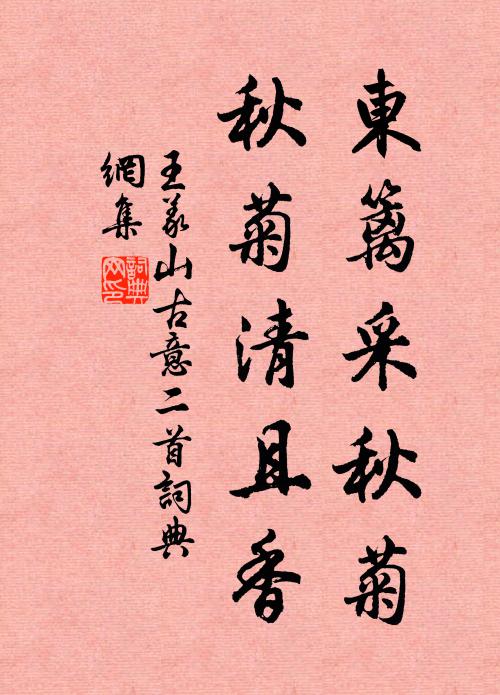 東籬采秋菊
秋菊清且香
王義山古意二首詞典
網集
詞典
网印